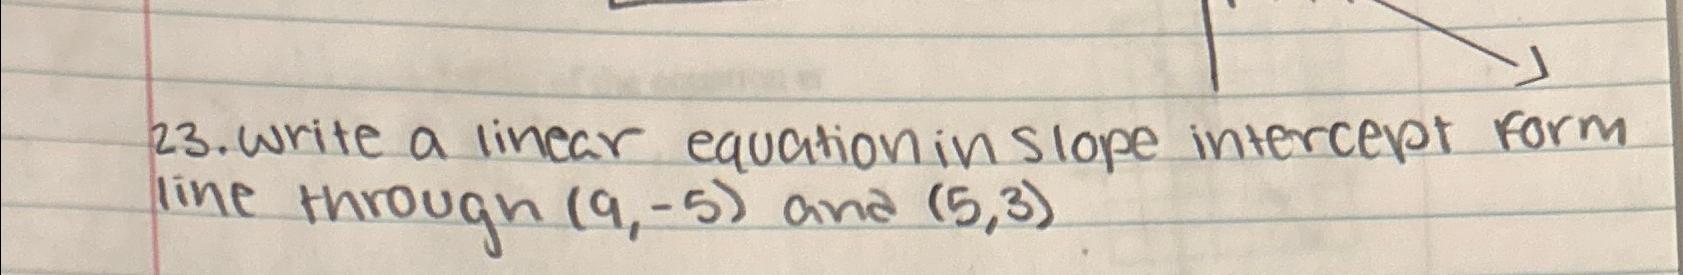 23. Write a linear equation in slope intercept form
line through (9,-5) and (5,3)